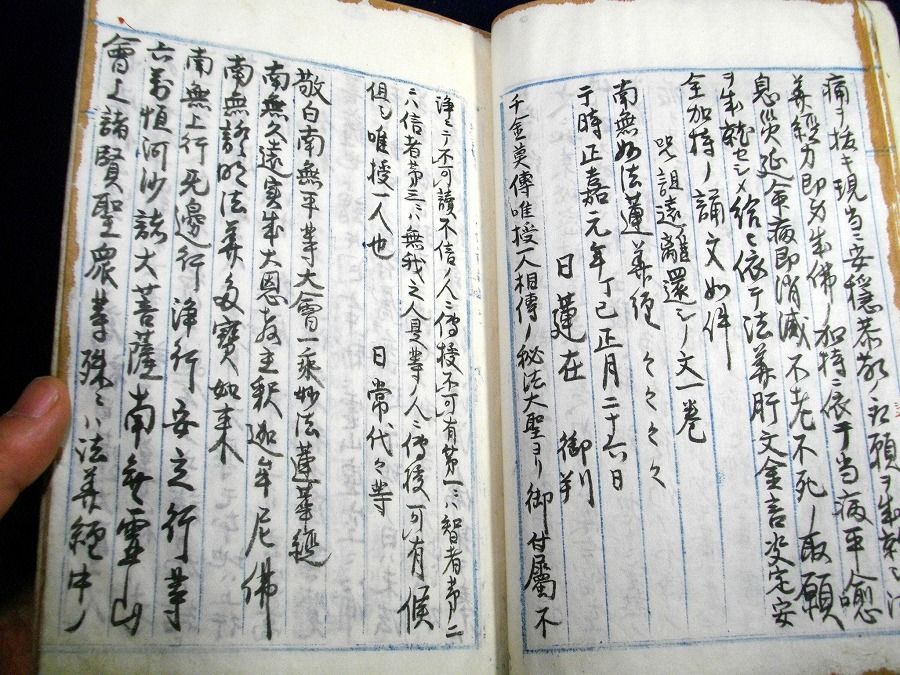 痛ヲ抜キ現当ニ安穏恭敬ノ立願ヲ成就
華経力即身成佛ノ加持ニ依テ当病平愈
息災延命病即消滅不老不死ノ取願
ヲ成就セシメ給ヘ依テ法華肝文金言決定安
全加持ノ誦文如件
呪詛遠離還シノ文一巻
南無妙法蓮華経 々々々々
于時正嘉元年丁巳正月二十六日
日蓮在 御判
千金莫傳唯授一人相傳ノ秘法大聖ヨリ御付屬不
浄ニテ不可讀不信ノ人ニ傳授不可有第一ニハ智者第二
ニハ信者第三ニハ無我之人是等ノ人ニ傳授可有候
但シ唯授一人也 日常代々等
敬白南無平等大會一乘妙法蓮華経
南無久遠実成大恩教主釈迦牟尼佛
南無證明法華多寶如来
南無上行无邊行浄行安立行等
六萬恒河沙諸大菩薩南無霊山
會上諸賢聖衆等殊ニハ法華経中ノ